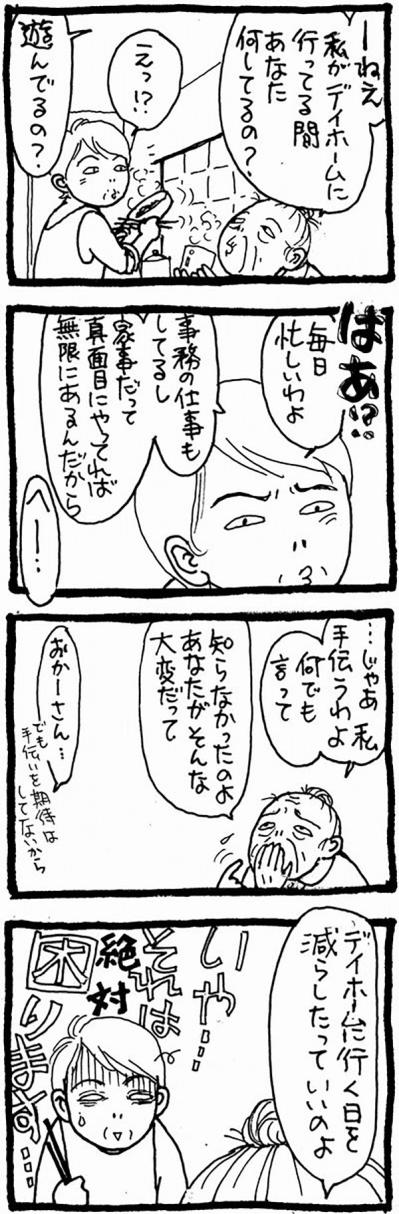 ーねえ
私がデイホームに
行ってる間
あなた
何してるの？
えっ!?
遊
んでるの？
はあ!?
毎日
忙しいわよ
事務の仕事も
してるし
家事だって
真面目にやってれば
無限にあるんだから
へー…
…じゃあ私
手伝うわよ
何でも
言って
知らなかったのよ
あなたがそんな
大変だって
おかーさん…
でも
手伝いを期待は
してないから
デイホームに行く日を
減らしたっていいのよ
いや…
それは
絶対
困ります…